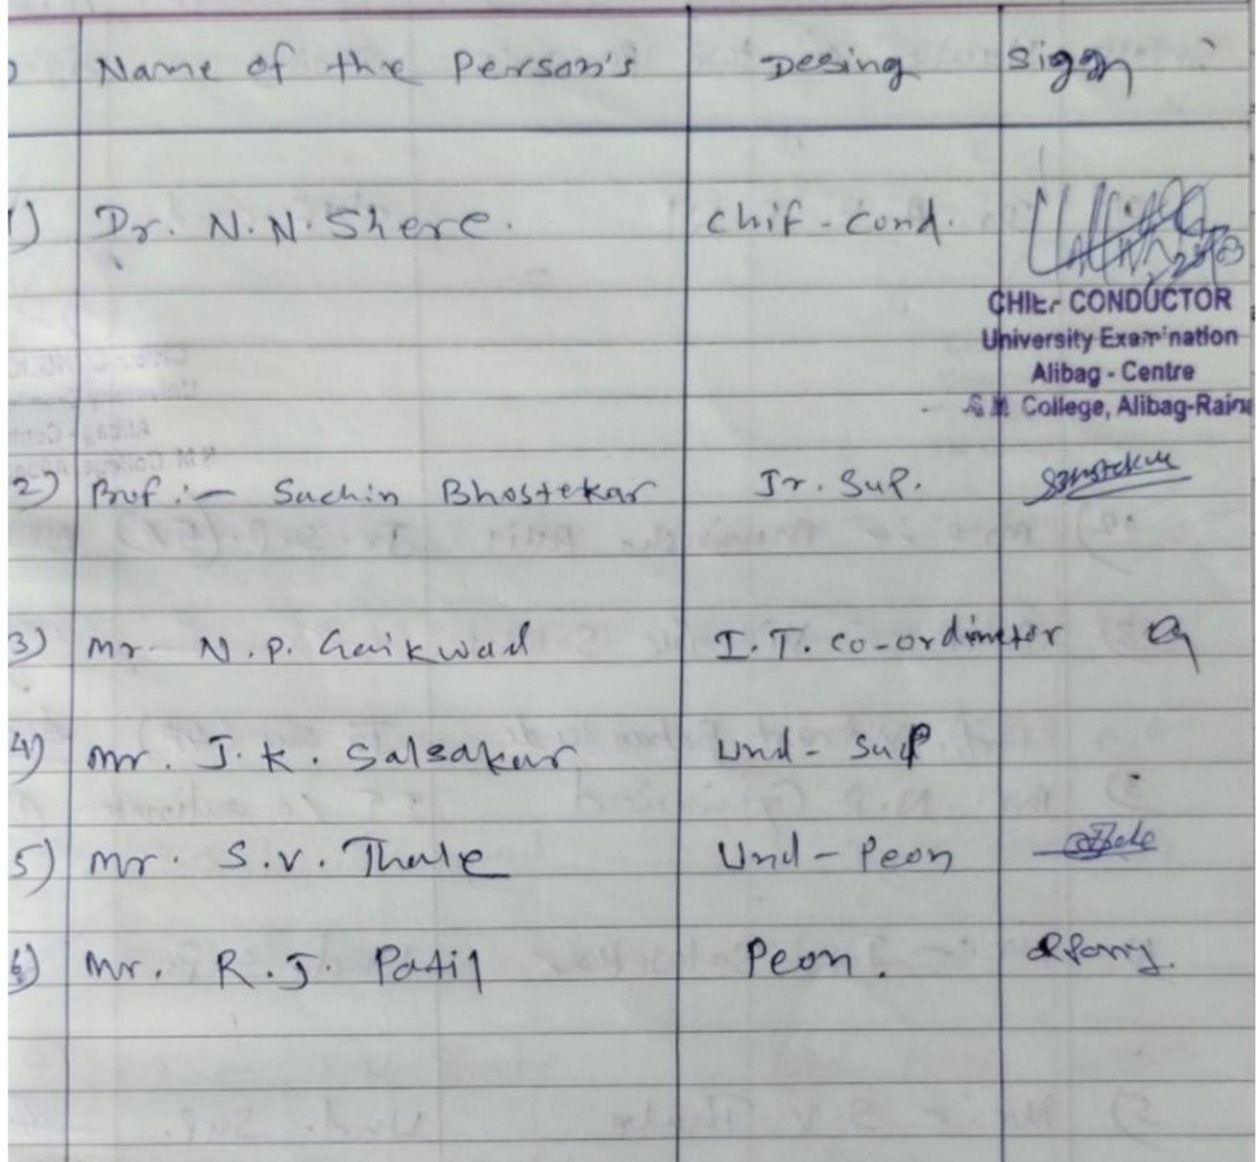 Name of the Person's Desing Sign
1) Dr. N.N. Shere. Chif - Cond.
CHIEF CONDUCTOR
University Examination
Alibag - Centre
S M College, Alibag-Raing
2) Prof :- Sachin Bhostekar Jr. Sup.
3) Mr. N.P. Gaikwad I.T. co-ordinetor
4) Mr. J.K. Salsakar Und - Sup
5) Mr. S.V. Thale Und - Peon
6) Mr. R.J. Patil Peon.